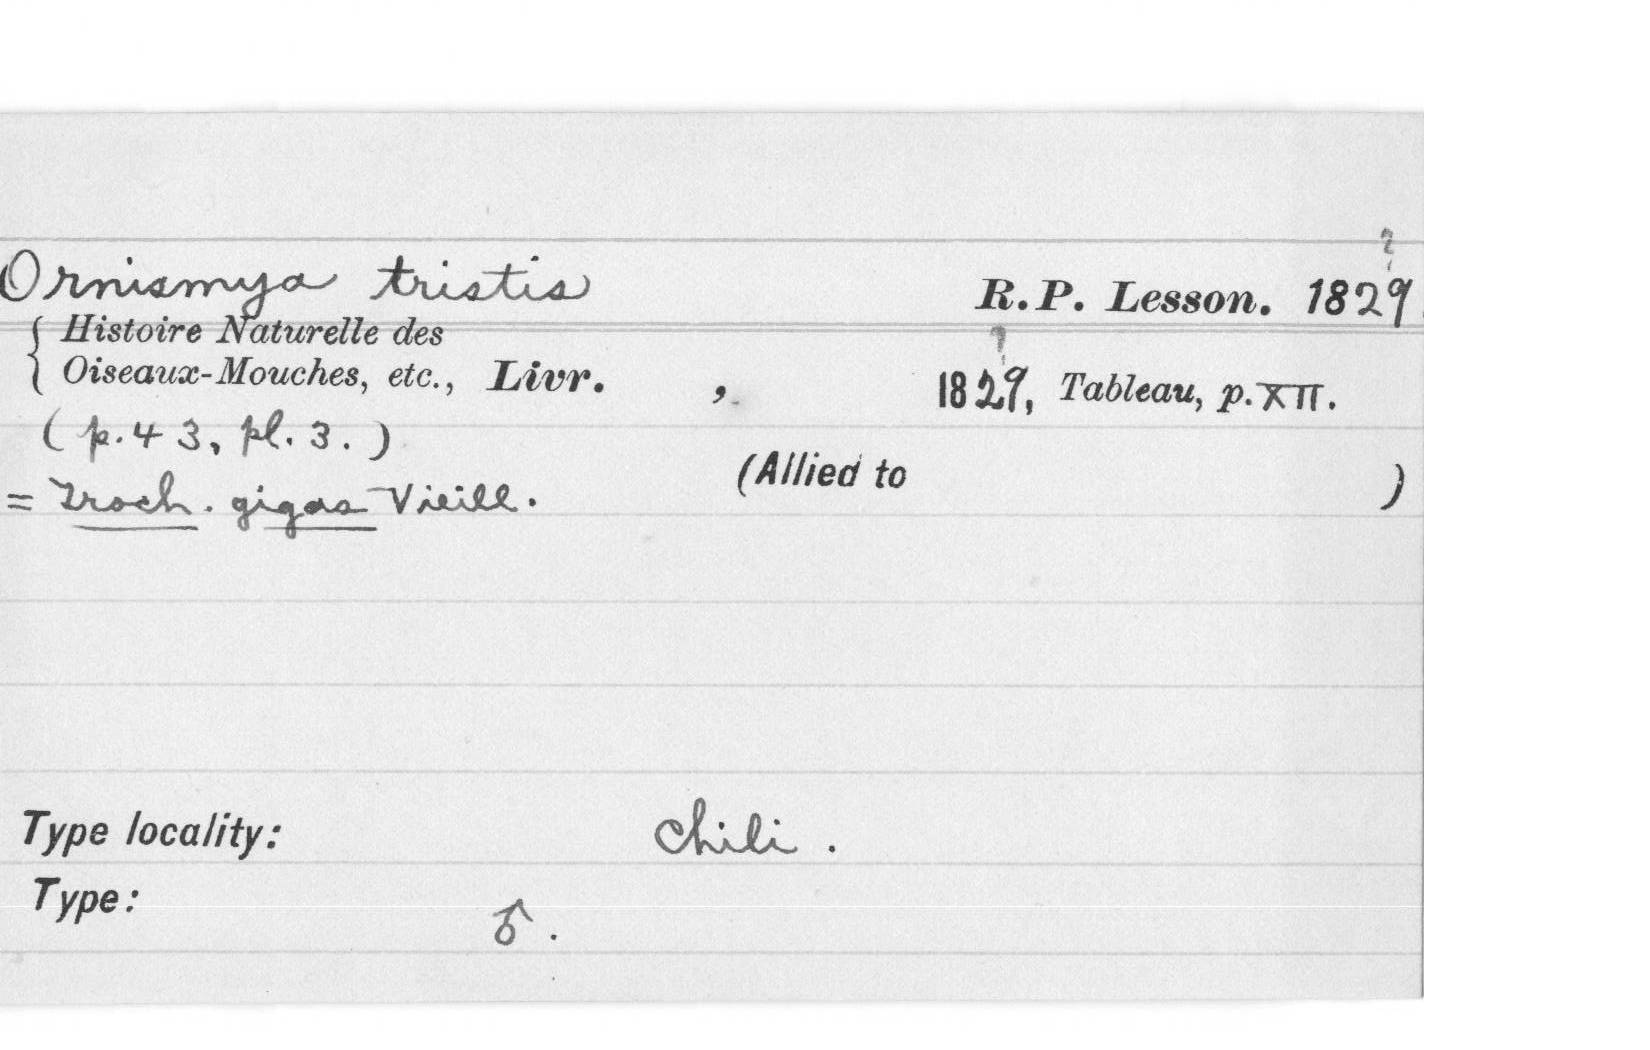 Ornismya tristis R.P. Lesson. 1829?
{ Histoire Naturelle des
Oiseaux-Mouches, etc., Livr. , 1829?, Tableau, p. XII.
( p. 43, pl. 3. )
(Allied to )
= Troch. gigas Vieill.
Type locality: Chili .
Type: ♂ .